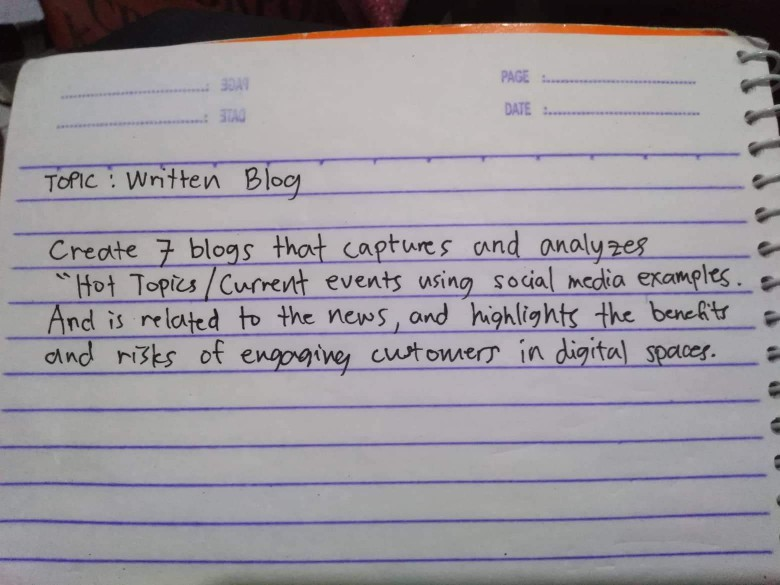 PAGE :
DATE :
TOPIC : Written Blog
Create 7 blogs that captures and analyzes
"Hot Topics/Current events using social media examples.
And is related to the news, and highlights the benefits
and risks of engaging customers in digital spaces.